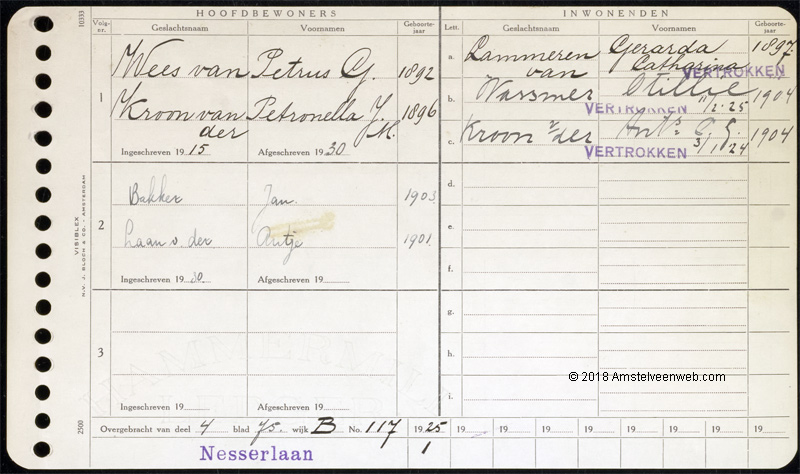 HOOFDBEWONERS
INWONENDEN
Volg-nr. Geslachtsnaam Voornamen Geboorte-jaar
Lett. Geslachtsnaam Voornamen Geboorte-jaar
1
Wees van Petrus G. 1892
Kroon van der Petronella J. M. 1896
Ingeschreven 1915 Afgeschreven 1930
a. Lammeren van Gerarda Catharina 1897
VERTROKKEN
b. Wassmer 11/2.25 1904
VERTROKKEN
c. Kroon v/der 3/1 24 1904
VERTROKKEN
2
Bakker Jan. 1903
Laan v. der Antje 1901
Ingeschreven 1930. Afgeschreven 19
d.
e.
f.
3
Ingeschreven 19 Afgeschreven 19
g.
h.
i.
© 2018 Amstelveenweb.com
Overgebracht van deel 4 blad 75. wijk B No. 117 1925 19 19 19 19 19 19 19 19
1
Nesserlaan
10333
VISIBLEX
N.V. J. BLOCH & CO. - AMSTERDAM
2500